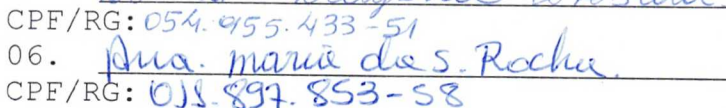 CPF/RG: 054.955.433-51
06. Ana. maria da s. Rocha.
CPF/RG: 013.897.853-58